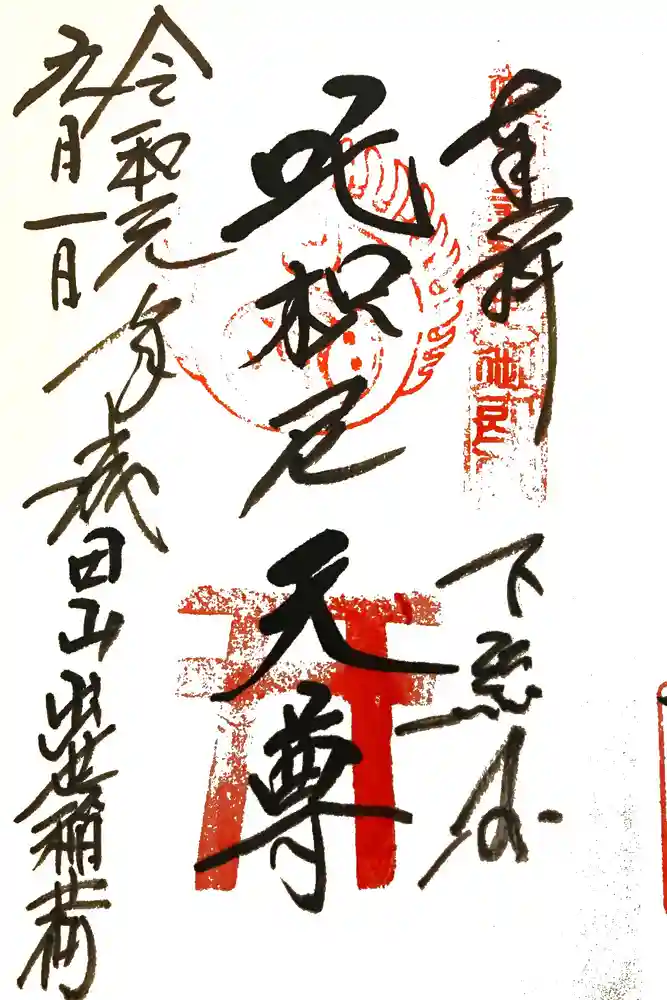 奉拝 下総
吒枳尼天尊
令和元年 成田山出世稲荷
五月一日